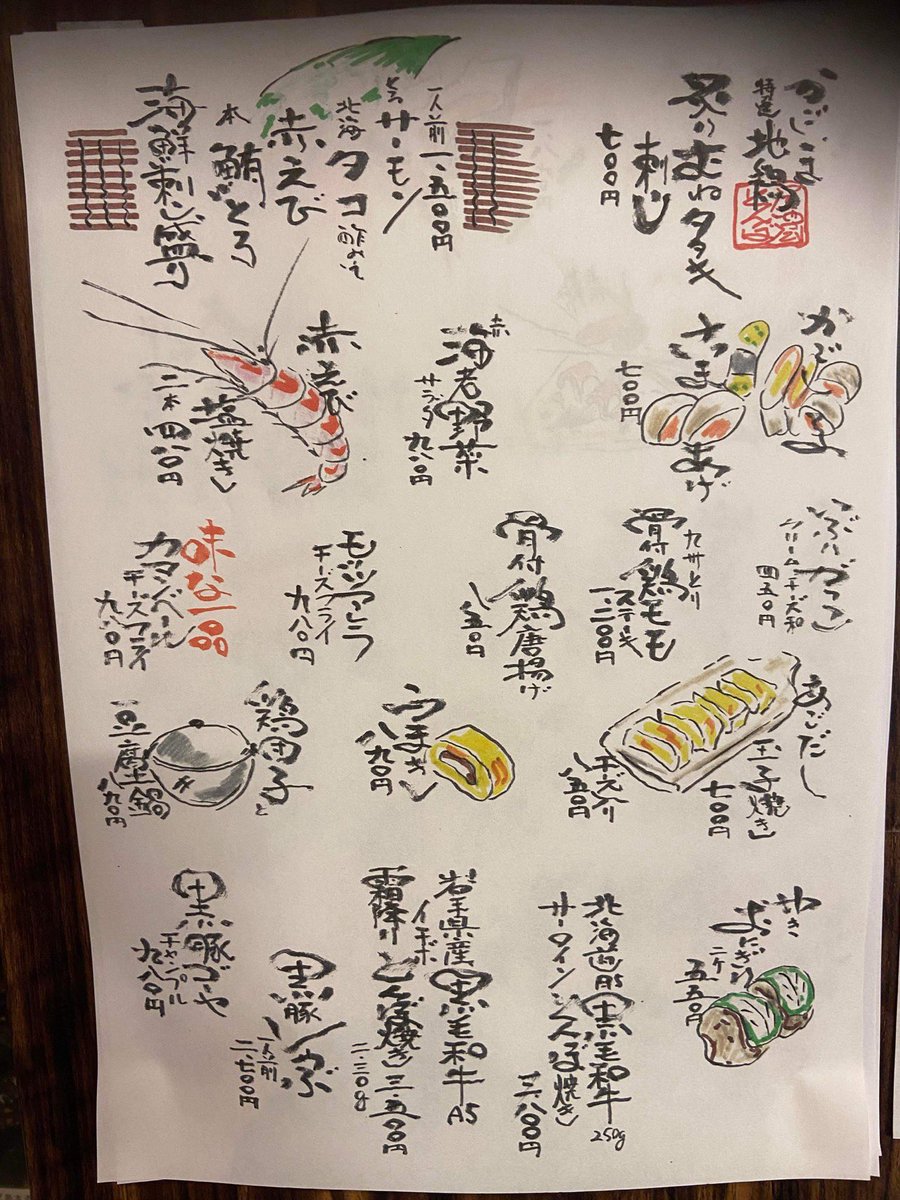 かごしま
特選地鶏
炙りむねタタキ
刺し
七〇〇円
一人前一、五〇〇円
とろサーモン
北海タコ酢みそ
赤えび
本鮪とろ
海鮮刺し盛り
かごしま
さつまあげ
七〇〇円
赤海老野菜
サラダ九八〇円
赤えび
塩焼き
二本
いぶりがっこ
クリームチーズ和
四五〇円
九州とり
骨付鶏モモ
ステーキ
一、二〇〇円
骨付鶏唐揚げ
八五〇円
モッツァレラ
チーズフライ
九八〇円
味な一品
カマンベール
チーズフライ
九八〇円
あごだし
玉子焼き
七〇〇円
チーズ入り
八五〇円
うまき
八九〇円
鶏団子と
豆腐土鍋
八九〇円
焼き
おにぎり
二ケ
五五〇円
北海道産黒毛和牛
250g
サーロインとんぼ焼き
三、八〇〇円
岩手県産黒毛和牛A5
イチボ
霜降りとんぼ焼き三、五〇〇円
二三〇g
黒豚しゃぶ
一人前
二、七〇〇円
黒豚ゴーヤ
チャンプル
九八〇円